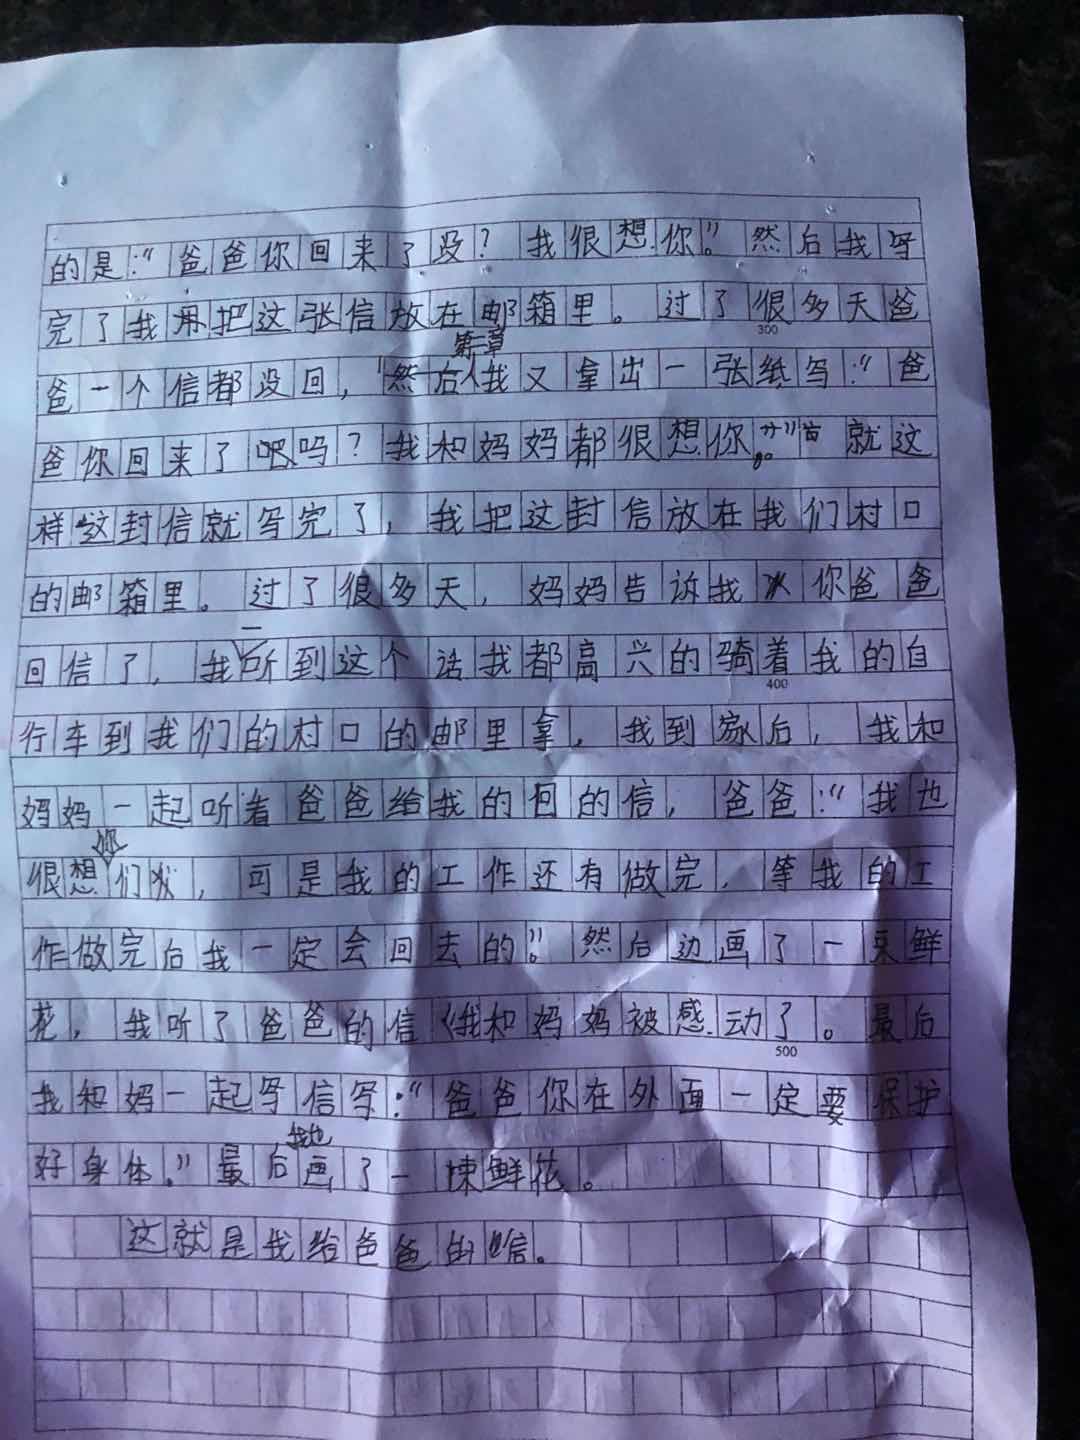 的是:“爸爸你回来了没?我很想你。”然后我写
完了我再把这张信放在邮箱里。过了很多天爸
300
爸一个信都没回,我又拿出一张纸写:“爸
爸你回来了吗?我和妈妈都很想你。”就这
样这封信就写完了,我把这封信放在我们村口
的邮箱里。过了很多天,妈妈告诉我你爸爸
回信了,我一听到这个话我都高兴的骑着我的自
400
行车到我们的村口的邮里拿,我到家后,我和
妈妈一起听着爸爸给我的回的信,爸爸:“我也
很想你们,可是我的工作还有做完,等我的工
作做完后我一定会回去的。”然后边画了一束鲜
花,我听了爸爸的信我和妈妈被感动了。最后
500
我和妈一起写信写:“爸爸你在外面一定要保护
好身体。”最后我也画了一揀鲜花。
这就是我给爸爸的信。